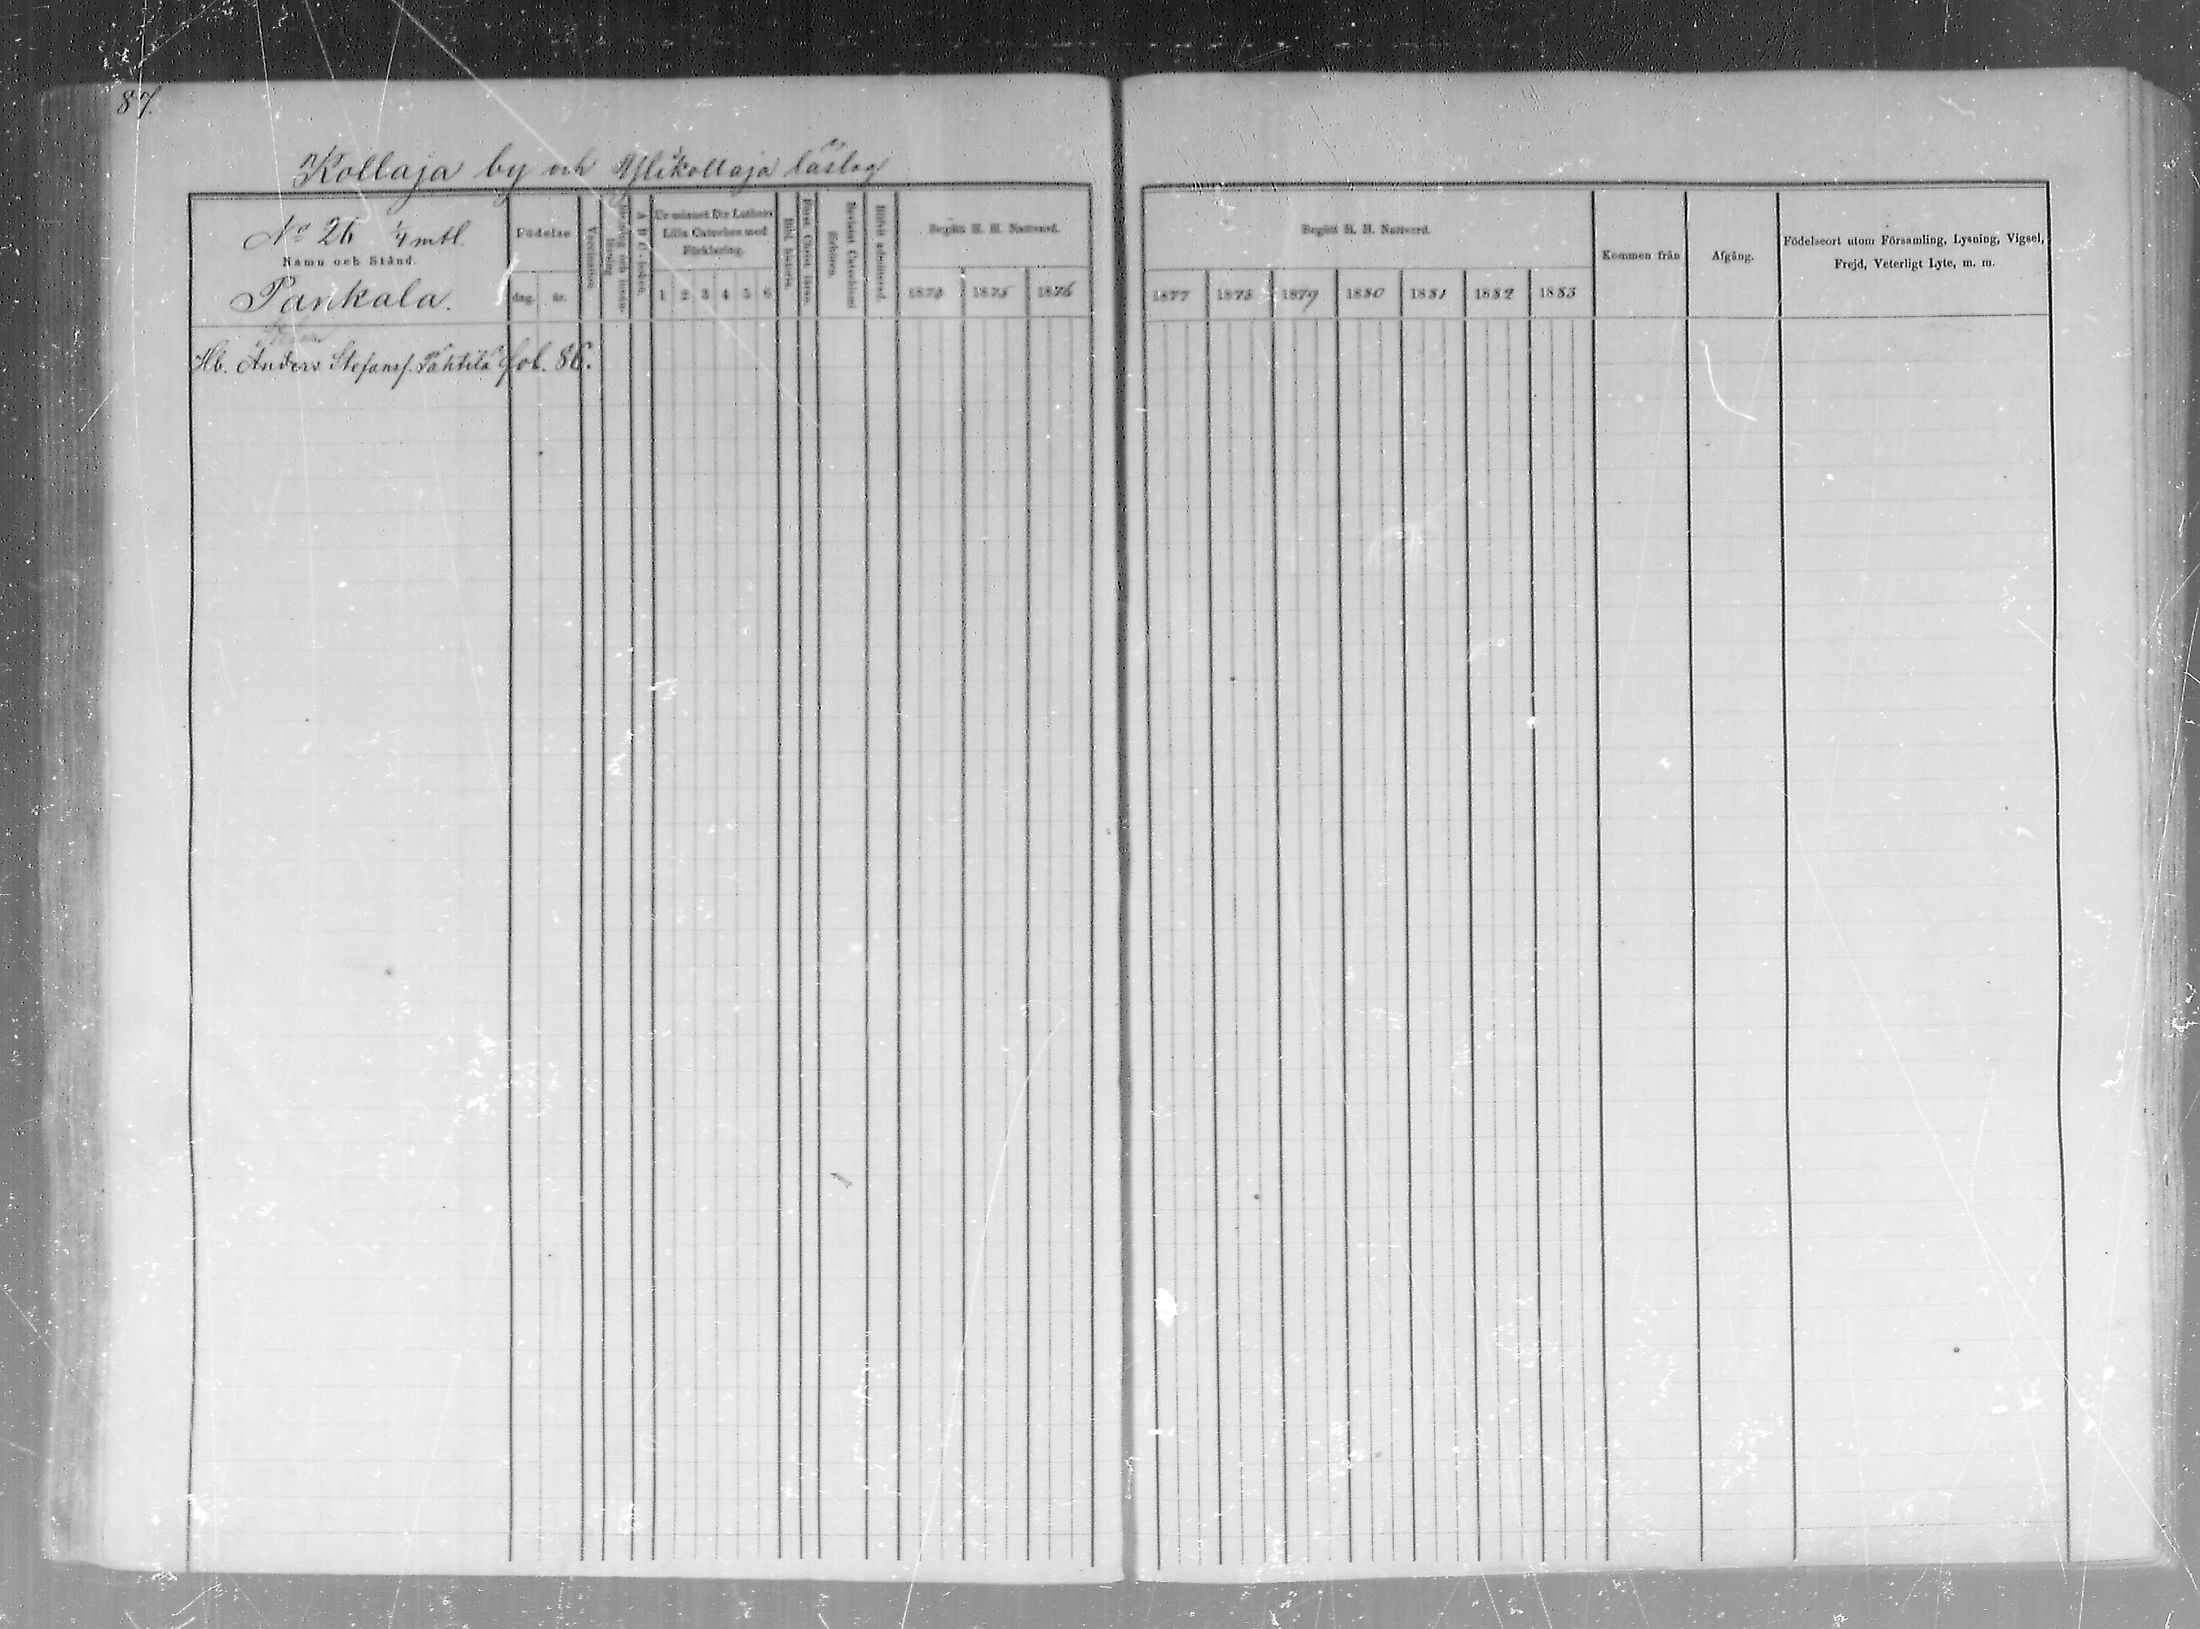 87.
Kollaja by och Ylikollaja läslag
No 26 1/4 mtl.
Namn och Stånd.
Pankala.
Födelse
dag. år.
Vaccination.
A B C-boken.
Ur minnet D:r Luthers
Lilla Cateches med
Förklaring.
1 2 3 4 5 6
Bibl. historia.
Hört Christ. läran.
Bevistat Catechismi
förhören.
Blifvit admitterad.
Begått H. H. Nattvard.
1874 1875 1876
Begått H. H. Nattvard.
1877 1878 1879 1880 1881 1882 1883
Kommen från
Afgång.
Födelseort utom Församling, Lysning, Vigsel,
Frejd, Veterligt Lyte, m. m.
Hb. Anders Stefanss. Tähtilä fol. 86.